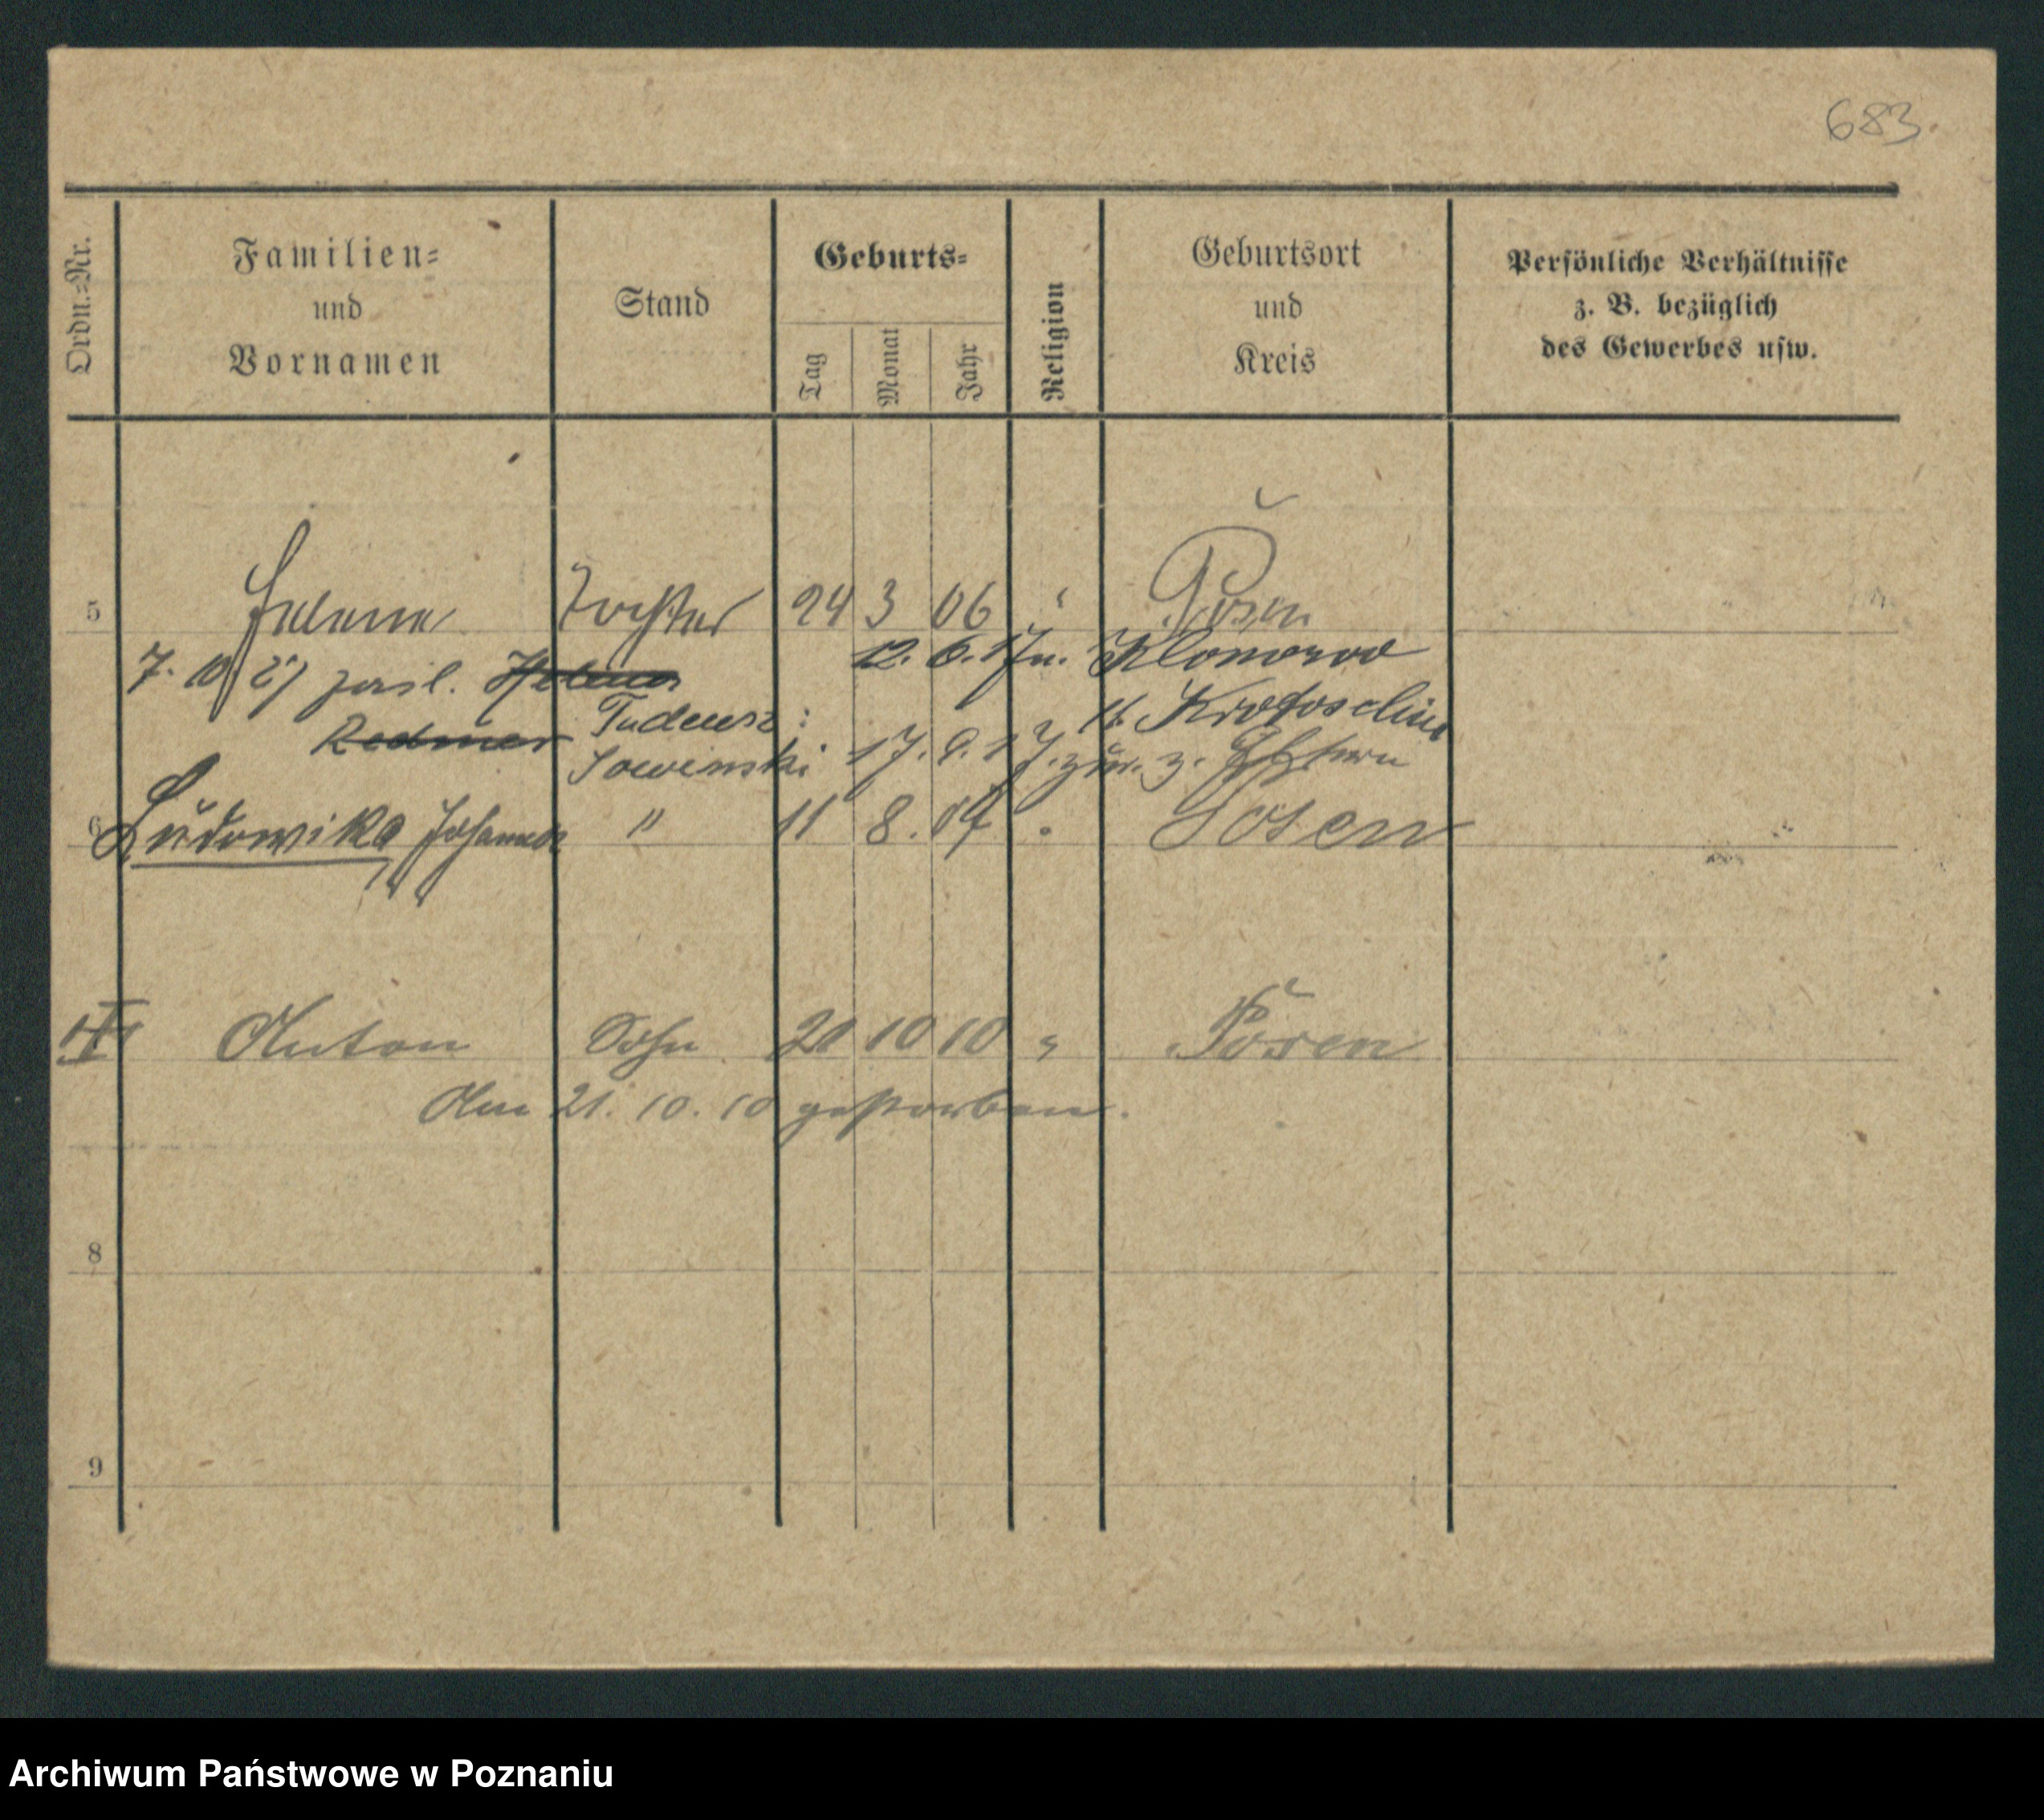 683.
Ordn.-Nr.
Familien-
und
Vornamen
Stand
Geburts-
Tag
Monat
Jahr
Religion
Geburtsort
und
Kreis
Persönliche Verhältnisse
z. B. bezüglich
des Gewerbes usw.
5 Helena Tochter 24 3 06 " Posen
12. 6. 17 n.
7. 10 27 Helena
Redmer Tadeusz: K. Krotoschin
17. 9. 17. zur. z. Eltern
6 Ludowika Johanna " 11 8. 07 " Posen
Anton Sohn 20 10 10 " Posen
Am 21. 10. 10 gestorben.
8
9
Archiwum Państwowe w Poznaniu